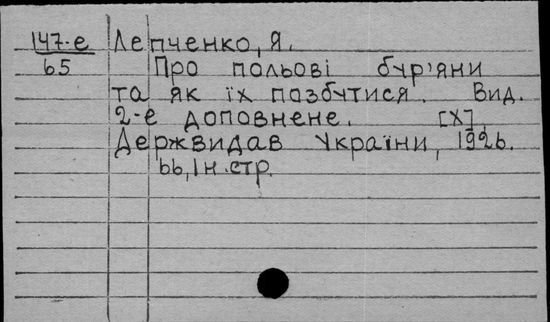 147-е Лепченко, Я.
65 Про польові бур'яни
та як їх позбутися. Вид.
2-е доповнене. [Х],
Держвидав України, 1926.
66, 1 н. стр.